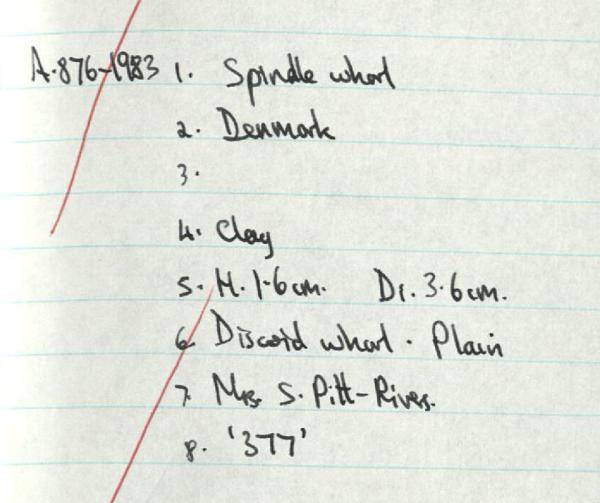 A.876-1983 1. Spindle whorl
2. Denmark
3.
4. Clay
5. H. 1.6cm. Di. 3.6cm.
6. Discoid whorl. Plain
7. Mrs. S. Pitt-Rivers.
8. '377'